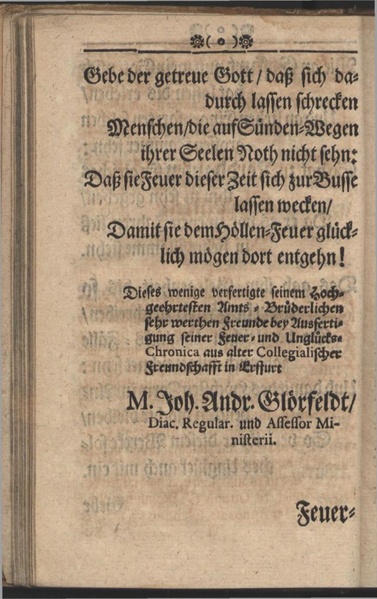 ❁( o )❁
Gebe der getreue Gott / daß sich da-
durch lassen schrecken
Menschen/die auf Sünden-Wegen
ihrer Seelen Noth nicht sehn:
Daß sie Feuer dieser Zeit sich zur Busse
lassen wecken/
Damit sie dem Höllen-Feuer glück-
lich mögen dort entgehn!
Dieses wenige verfertigte seinem Hoch-
geehrtesten Amts-Brüderlichen
sehr werthen Freunde bey Ausferti-
gung seiner Feuer- und Unglücks-
Chronica aus alter Collegialischer
Freundschafft in Erffurt
M. Joh. Andr. Glörfeldt/
Diac. Regular. und Assessor Mi-
nisterii.
Feuer-